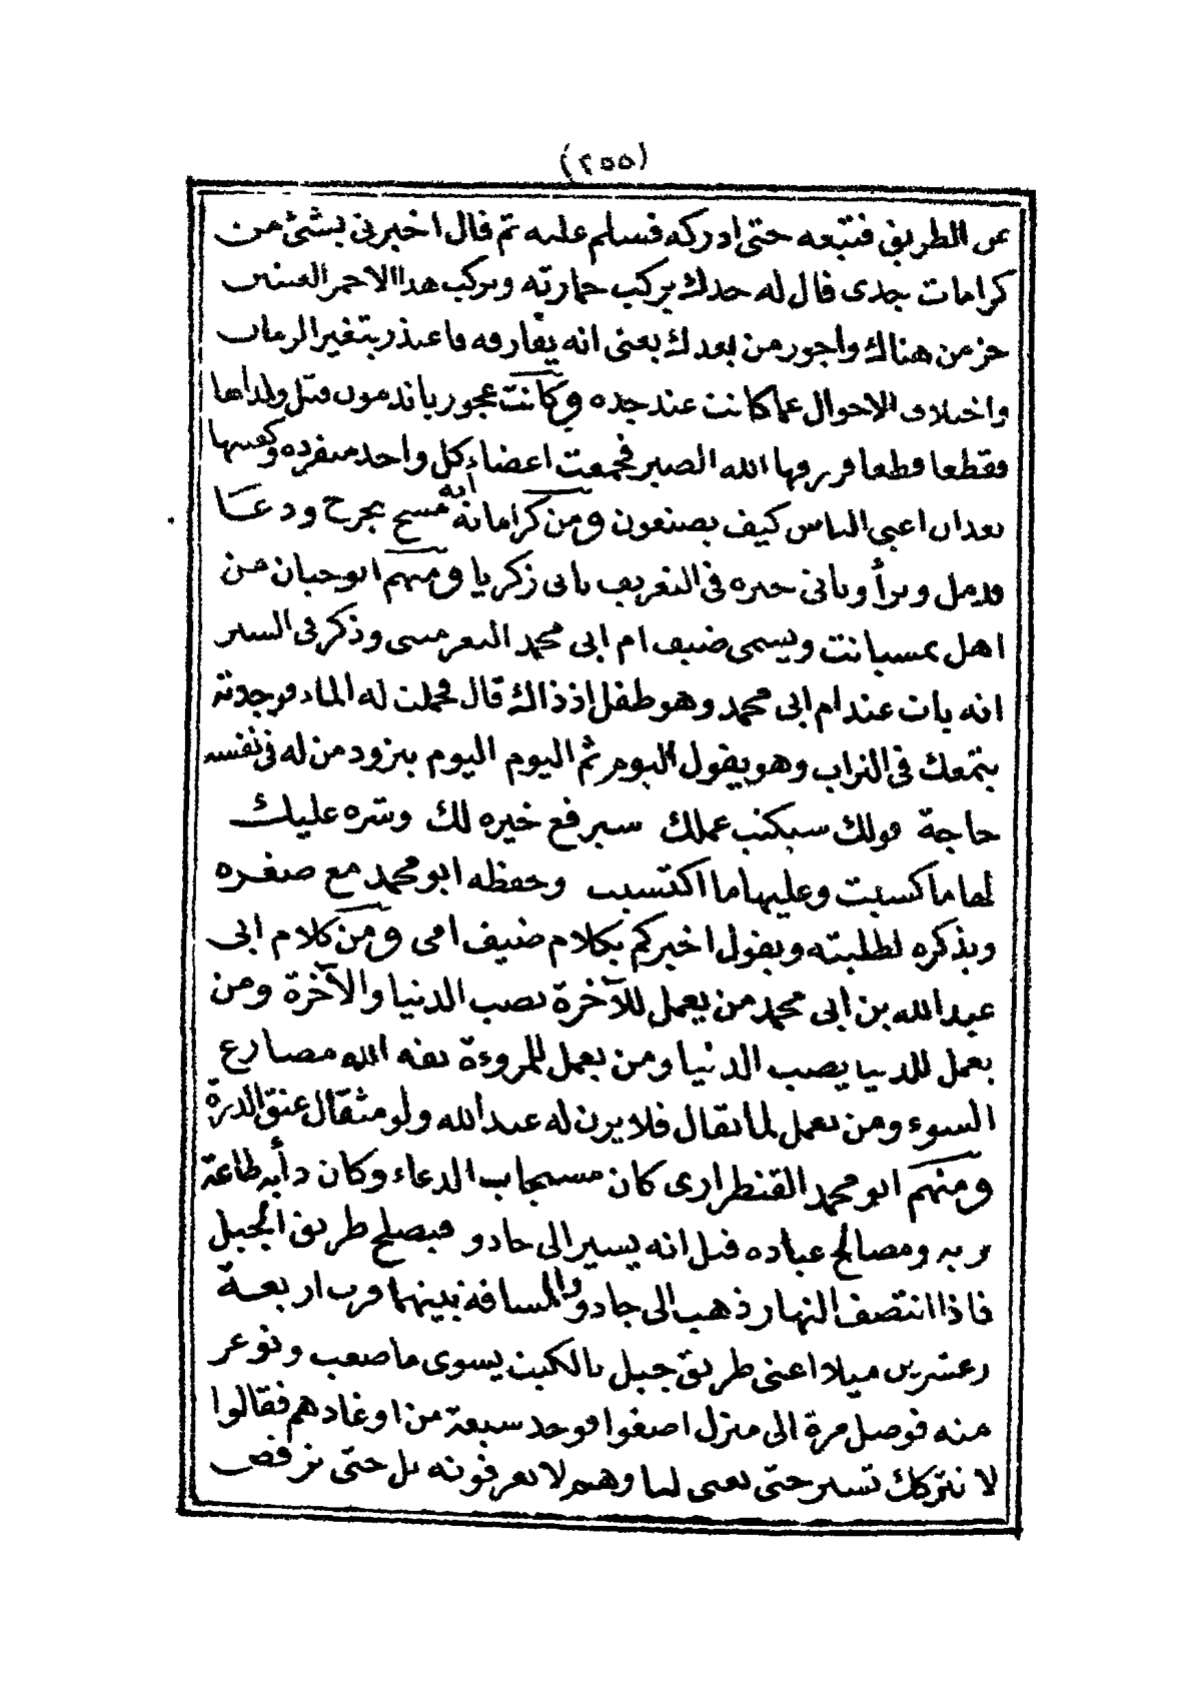 (٢٥٥)
عن الطريق فتبعه حتى ادركه فسلم عليه ثم قال اخبرنى بشئ من
كرامات جدى قال له جدك يركب حمارته ويركب هذا الاحمر
حز من هناك واجور من بعدك يعنى انه يفارقه فاعتذر بتغير الزمان
واختلاف الاحوال عما كانت عند جده وكانت عجوز باندمون قتل ولداها
فقطعا قطعا فرزقها الله الصبر فجمعت اعضاء كل واحد منفرده وكفنتها
بعد ان اعيى الناس كيف يصنعون ومن كراماته انه مسح بجرح ودعا
ودمل وبرأ وياتى خبره فى التعريف بابى زكريا ومنهم ابو حبان من
اهل يمسبانت ويسمى ضيف ام ابى محمد وذكر فى السير
انه بات عند ام ابى محمد وهو طفل اذ ذاك قال فحملت له الماء فوجدته
يتمعك فى التراب وهو يقول اليوم ثم اليوم اليوم يتزود من له فى نفسه
حاجة قولك سيكتب عملك سيرفع خيره لك وشره عليك
لها ما كسبت وعليها ما اكتسبت وحفظه ابو محمد مع صغره
ويذكره لطلبته ويقول اخبركم بكلام ضيف امى ومن كلام ابى
عبد الله بن ابى محمد من يعمل للآخرة يصب الدنيا والآخرة ومن
يعمل للدنيا يصب الدنيا ومن يعمل للمروءة يقه الله مصارع
السوء ومن يعمل لما يقال فلا يزن له عند الله ولو مثقال عنق الذرة
ومنهم ابو محمد القنطرارى كان مستجاب الدعاء وكان دأبه طاعة
ربه ومصالح عباده قيل انه يسير الى جادو فيصلح طريق الجبل
فاذا انتصف النهار ذهب الى جادو والمسافة بينهما قرب اربعة
وعشرين ميلا اعنى طريق جبل يسوى ما صعب وتوعر
منه فوصل مرة الى منزل اصغوا فوجد سبعة من اوغادهم فقالوا
لا نتركك تسير حتى تغنى لنا وهم لا يعرفونه بل حتى ترقص